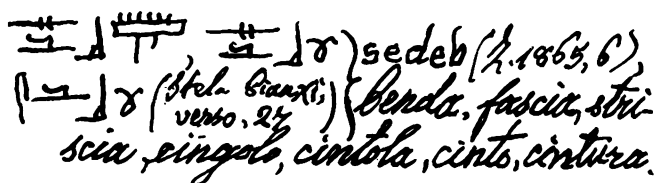 sedeb (Z. 1865, 6),
(Stela Bianχi, verso, 27) benda, fascia, stri-
scia, cingolo, cintola, cinto, cintura.